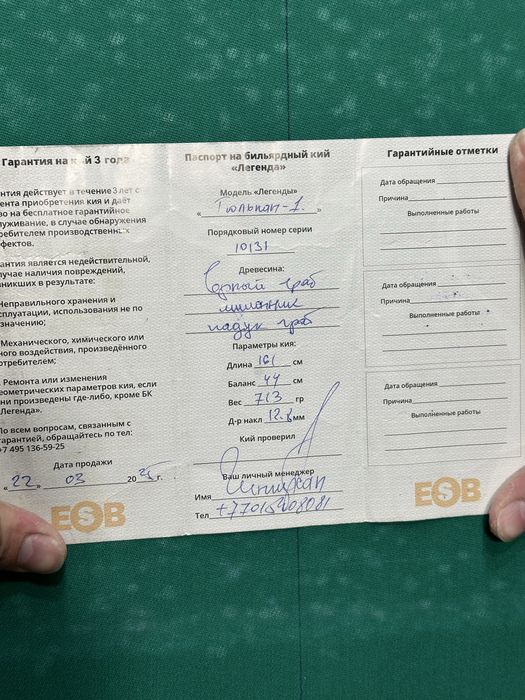 Гарантия на кий 3 года
нтия действует в течение 3 лет с
ента приобретения кия и дает
во на бесплатное гарантийное
луживание, в случае обнаружения
ребителем производственных
фектов.
рантия является недействительной,
лучае наличия повреждений,
никших в результате:
Неправильного хранения и
сплуатации, использования не по
значению;
Механического, химического или
ного воздействия, произведённого
отребителем;
Ремонта или изменения
еометрических параметров кия, если
ни произведены где-либо, кроме БК
Легенда».
По всем вопросам, связанным с
гарантией, обращайтесь по тел:
+7 495 136-59-25
Дата продажи
«22» 03 2025г.
ESB
Паспорт на бильярдный кий
«Легенда»
Модель «Легенды»
«Тюльпан-1.»
Порядковый номер серии
10131
Древесина:
Чёрный граб
падук граб
Параметры кия:
Длина 161 см
Баланс 44 см
Вес 713 гр
Д-р накл 12.8 мм
Кий проверил
Ваш личный менеджер
Имя
Тел +77015808081
Гарантийные отметки
Дата обращения
Причина
Выполненные работы
Дата обращения
Причина
Выполненные работы
Дата обращения
Причина
Выполненные работы
ESB